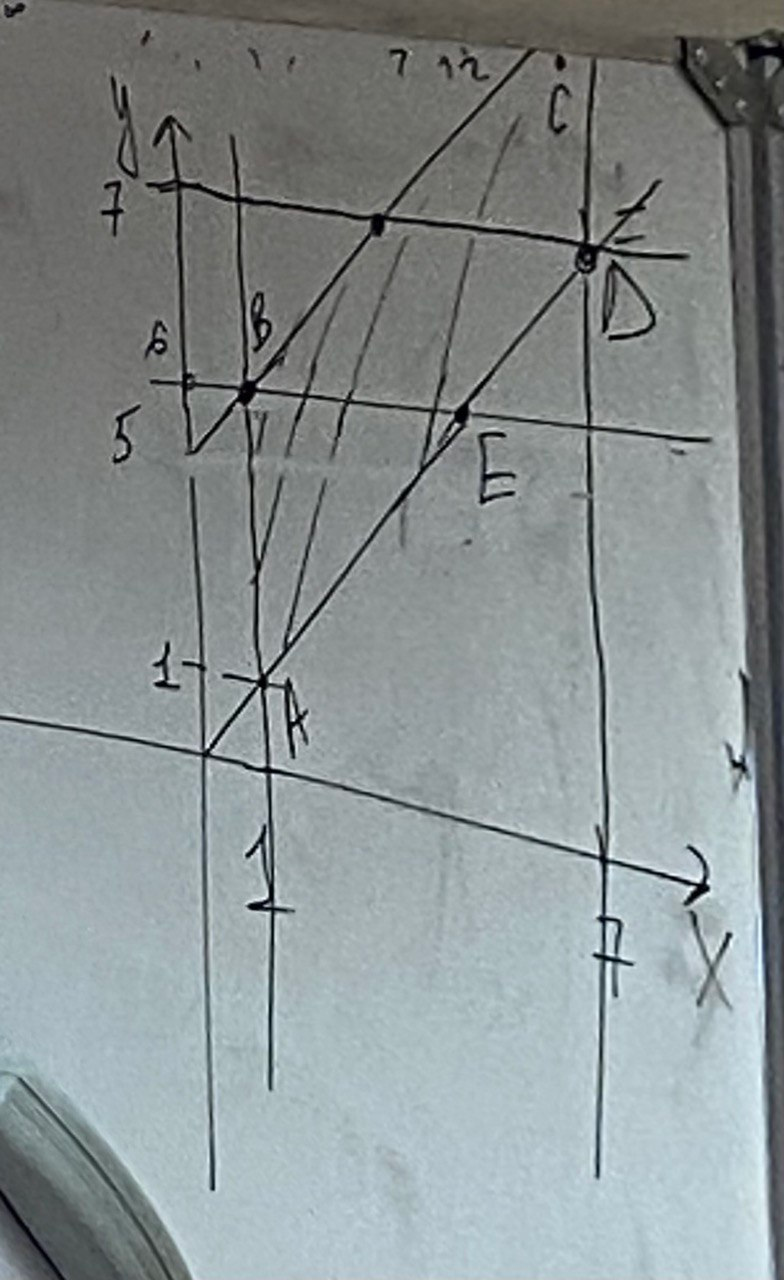 7 12
C
y
7
D
6
B
5
E
1
A
1
7
X